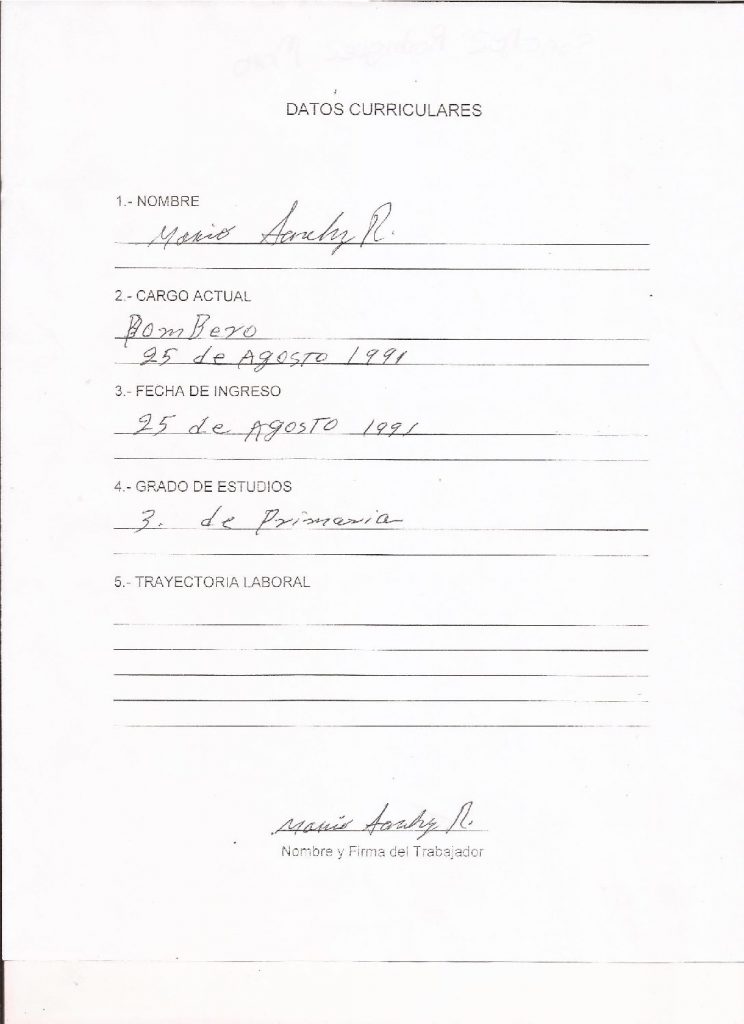 DATOS CURRICULARES
1.- NOMBRE
Mario Sanchz R.
2.- CARGO ACTUAL
BomBero
25 de AgosTo 1991
3.- FECHA DE INGRESO
25 de AgosTo 1991
4.- GRADO DE ESTUDIOS
3. de Primaria
5.- TRAYECTORIA LABORAL
Mario Sanchz R.
Nombre y Firma del Trabajador